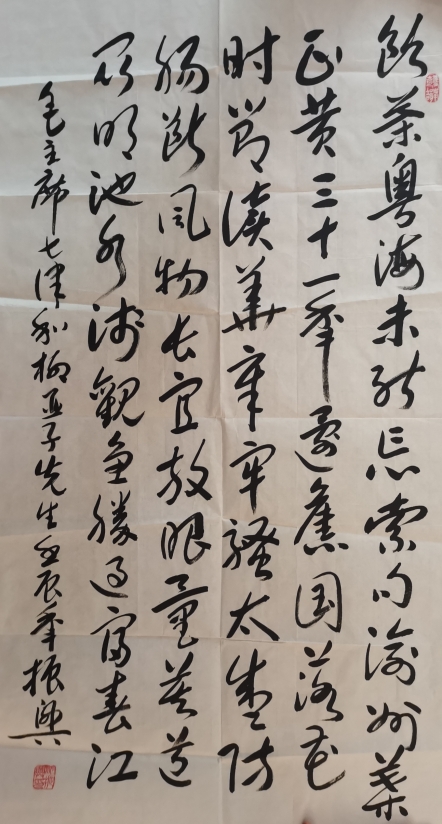 飲茶粤海未能忘索句渝州葉
正黄三十一年還舊国落花
时節讀華章牢騷太盛防
肠断风物长宜放眼量莫道
昆明池水浅觀魚勝過富春江
毛主席七律和柳亚子先生壬辰年振興